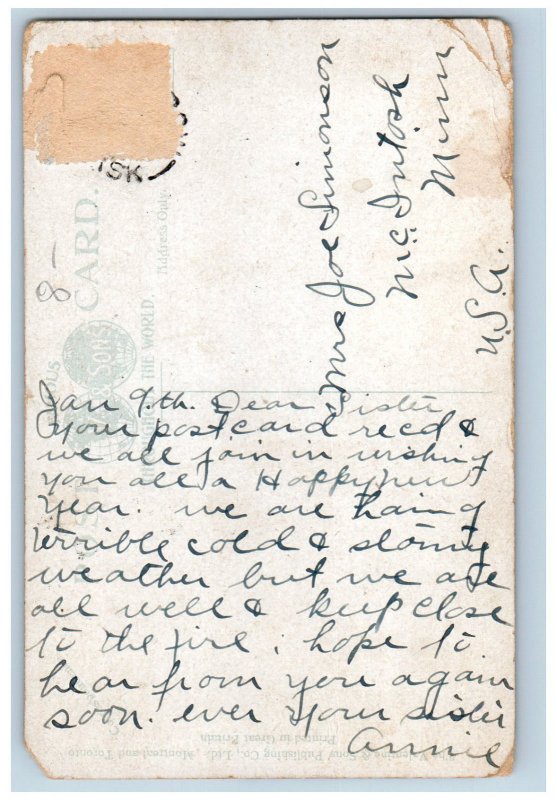 Mrs Joe Simonson
McIntosh
Minn
U.S.A.
8-
SK
CARD.
Address Only.
THE WORLD
& SONS
Jan 9.th. Dear Sister
your postcard recd &
we all join in wishing
you all a Happy new
year. we are haing
terrible cold & stormy
weather but we are
all well & keep close
to the fire. hope to
hear from you again
soon. ever your sister
Annie
The Valentine & Sons Publishing Co., Ltd. Montreal and Toronto
Printed in Great Britain